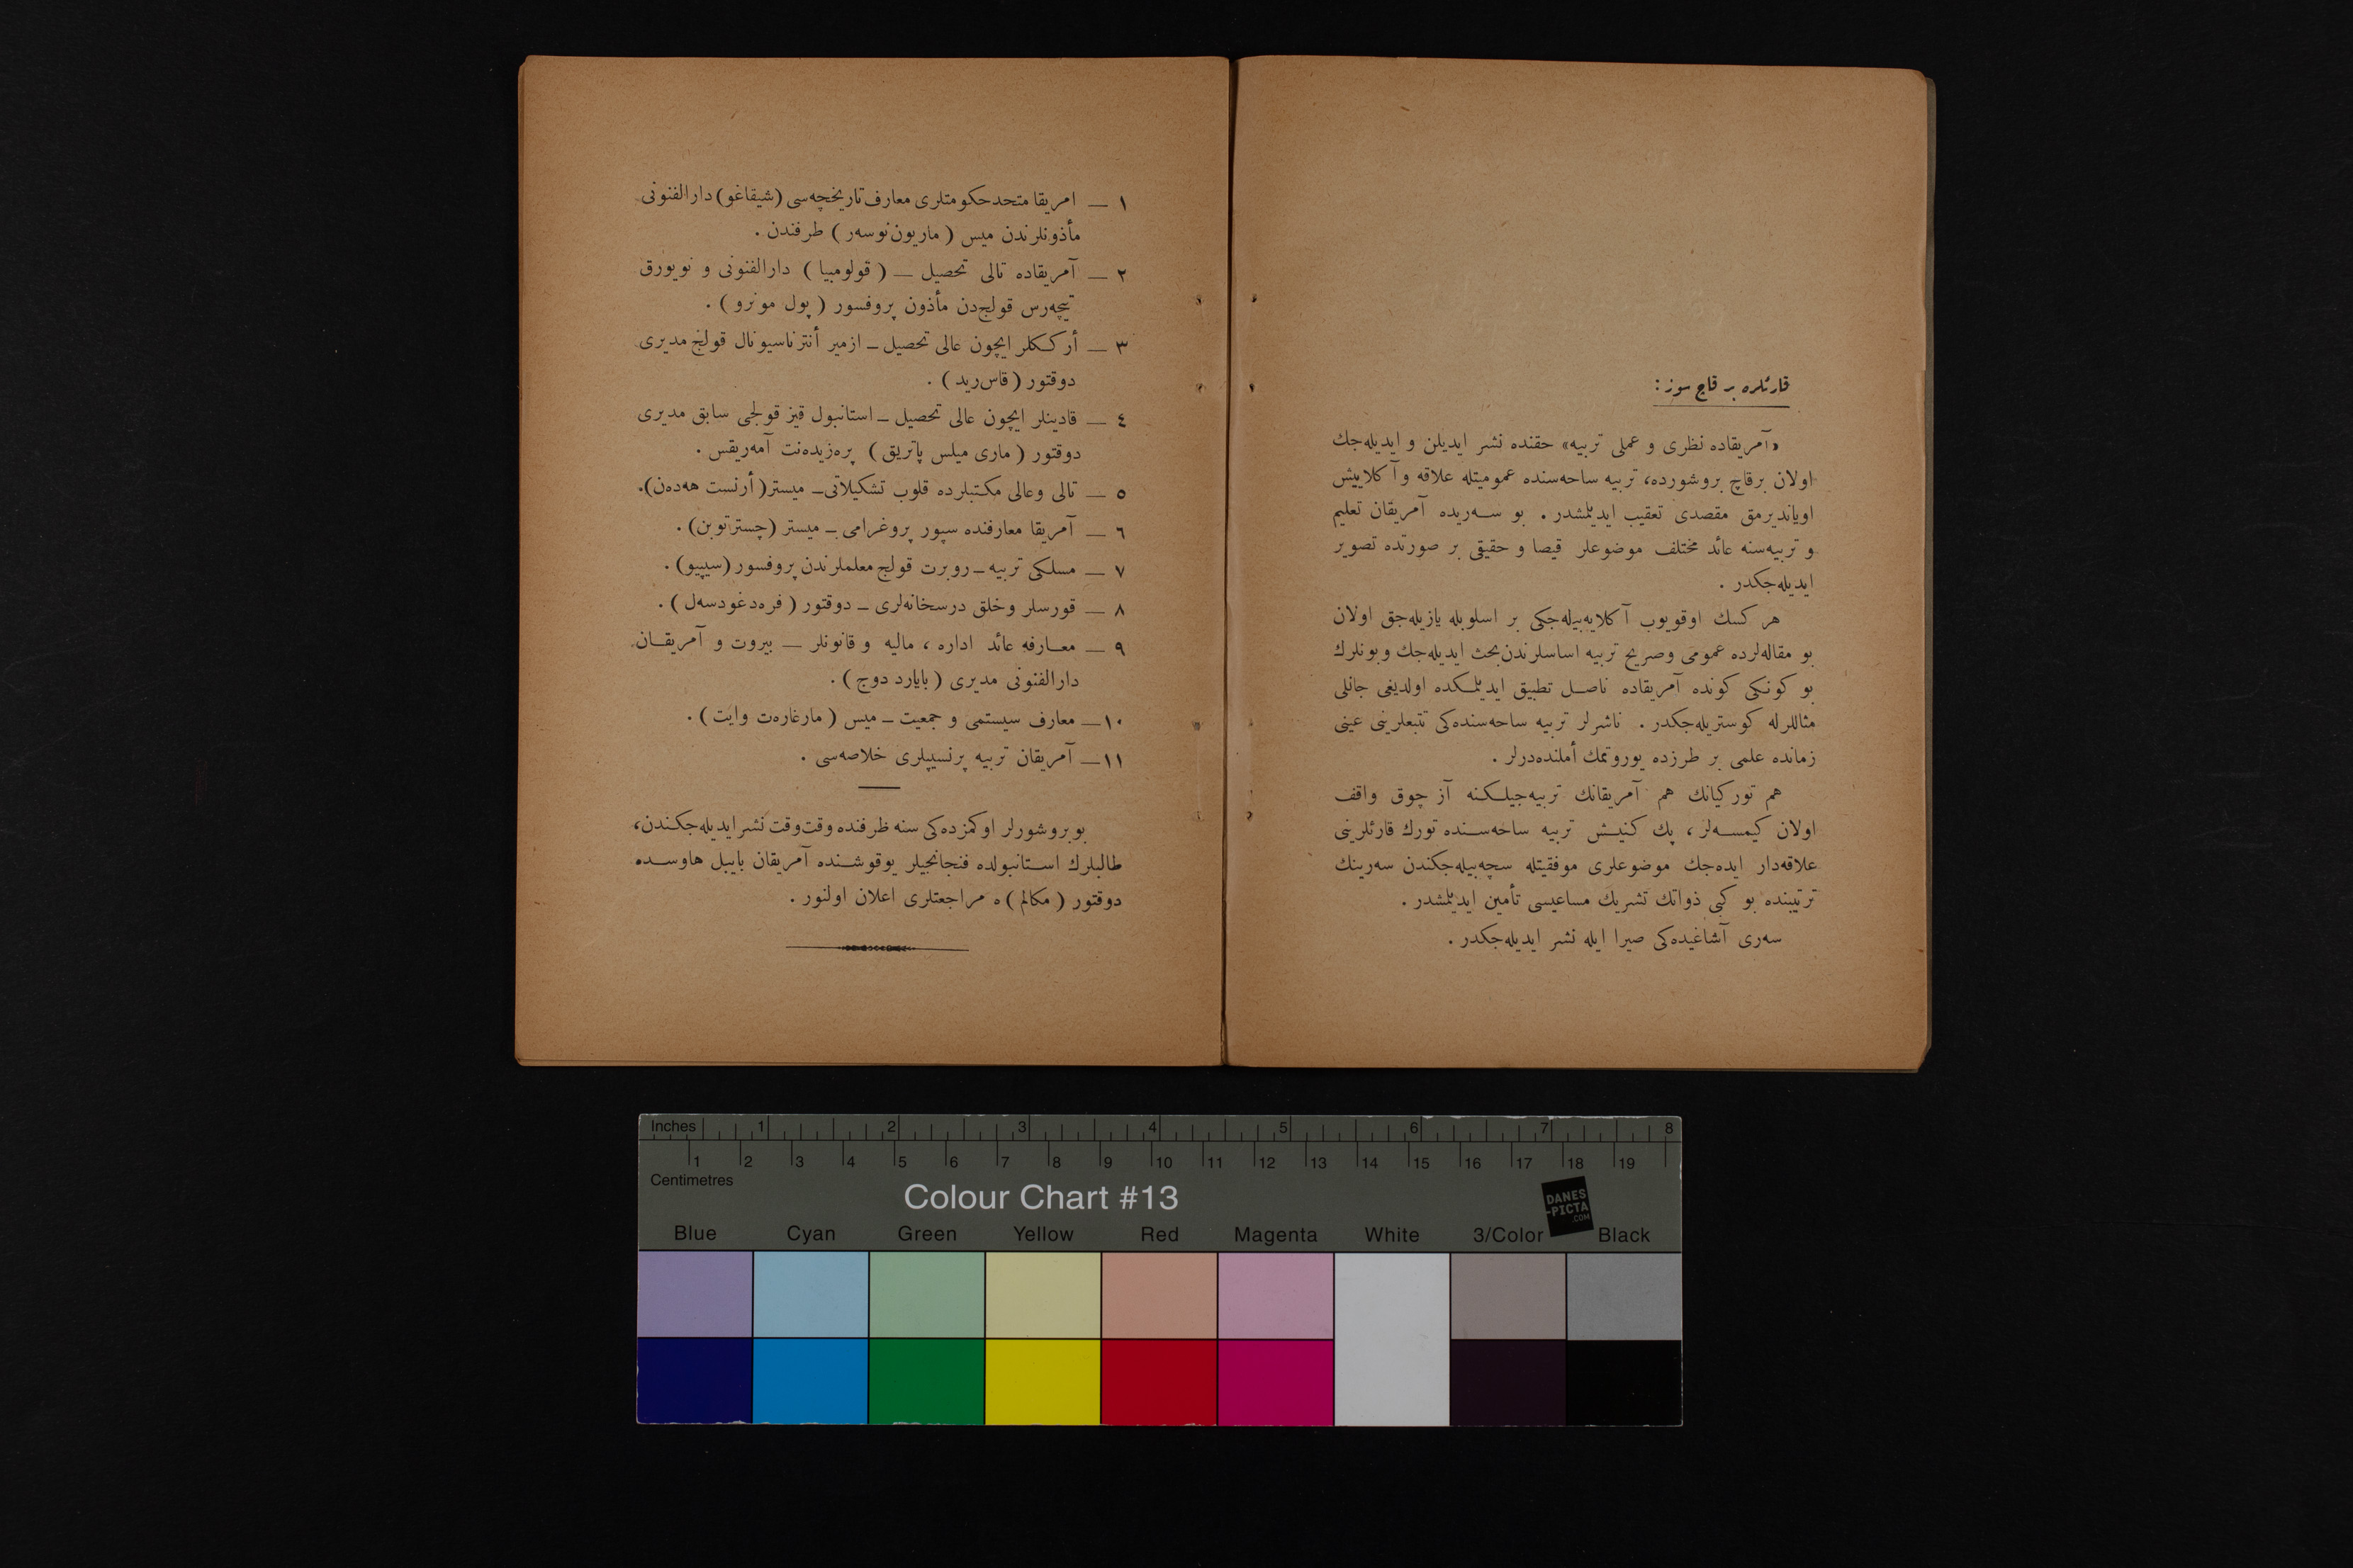 قارئلره بر قاچ سوز :
«آمریقاده نظری و عملی تربیه» حقنده نشر ایدیلن و ایدیله‌جك
اولان برقاچ بروشورده، تربیه ساحه‌سنده عمومیتله علاقه و آ کلاییش
اویاندیرمق مقصدی تعقیب ایدیلمشدر . بو سه‌ریده آمریقان تعلیم
و تربیه‌سنه عائد مختلف موضوعلر قیصا و حقیقی بر صورتده تصویر
ایدیله‌جکدر .
هر کسك اوقویوب آ کلایه‌بیله‌جکی بر اسلوبله یازیله‌جق اولان
بو مقاله‌لرده عمومی وصریح تربیه اساسلرندن بحث ایدیله‌جك وبونلرك
بو کونکی کونده آمریقاده ناصل تطبیق ایدیلمکده اولدیغی جانلی
مثاللرله کوستریله‌جکدر . ناشرلر تربیه ساحه‌سنده‌کی تتبعلرینی عینی
زمانده علمی بر طرزده یوروتمك أملنده‌درلر .
هم تورکیانك هم آمریقانك تربیه‌جیلکنه آز چوق واقف
اولان کیمسه‌لر ، پك کنیش تربیه ساحه‌سنده تورك قارئلرینی
علاقه‌دار ایده‌جك موضوعلری موفقیتله سچه‌بیله‌جکندن سه‌رینك
ترتیبنده بو کبی ذواتك تشریك مساعیسی تأمین ایدیلمشدر .
سه‌ری آشاغیده‌کی صیرا ایله نشر ایدیله‌جکدر .
١ — امریقا متحد حکومتلری معارف تاریخچه‌سی (شیقاغو) دارالفنونی
مأذونلرندن میس ( ماریون نوسه‌ر ) طرفندن .
٢ — آمریقاده تالی تحصیل — ( قولومبیا ) دارالفنونی و نویورق
تیچه‌رس قولج‌دن مأذون پروفسور ( پول مونرو ) .
٣ — أرککلر ایچون عالی تحصیل — ازمیر أنترناسیونال قولج مدیری
دوقتور ( قاس رید ) .
٤ — قادینلر ایچون عالی تحصیل — استانبول قیز قولجی سابق مدیری
دوقتور ( ماری میلس پاتریق ) پره‌زیده‌نت آمه‌ریقس .
٥ — تالی وعالی مکتبلرده قلوب تشکیلاتی — میستر( أرنست هه‌ده‌ن).
٦ — آمریقا معارفنده سپور پروغرامی — میستر (چسترتوبن) .
٧ — مسلکی تربیه — روبرت قولج معلملرندن پروفسور (سیپیو) .
٨ — قورسلر وخلق درسخانه‌لری — دوقتور ( فره‌د غودسه‌ل ) .
٩ — معارفه عائد اداره ، مالیه و قانونلر — بیروت و آمریقان
دارالفنونی مدیری ( بایارد دوج ) .
١٠— معارف سیستمی و جمعیت — میس ( مارغاره‌ت وایت ) .
١١— آمریقان تربیه پرنسیپلری خلاصه‌سی .
بو بروشورلر اوکمزده‌کی سنه ظرفنده وقت وقت نشر ایدیله‌جکندن،
طالبلرك استانبولده فنجانجیلر یوقوشنده آمریقان بایبل هاوسده
دوقتور ( مکالم ) ه مراجعتلری اعلان اولنور .
Inches 1 2 3 4 5 6 7 8
1 2 3 4 5 6 7 8 9 10 11 12 13 14 15 16 17 18 19
Centimetres
Colour Chart #13
DANES
-PICTA
.COM
Blue Cyan Green Yellow Red Magenta White 3/Color Black